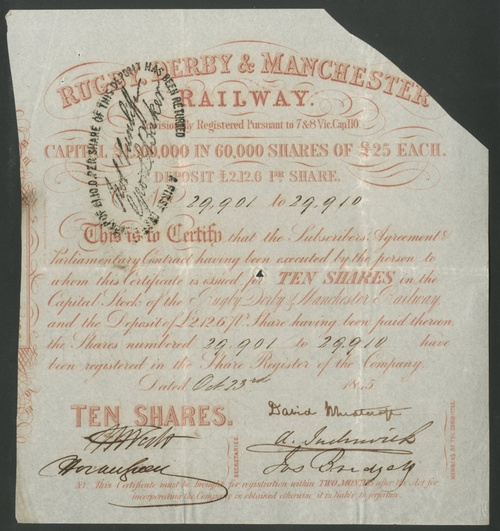 RUGBY, DERBY & MANCHESTER
RAILWAY.
Provisionally Registered Pursuant to 7 & 8 Vic. Cap 110
CAPITAL 00,000 IN 60,000 SHARES OF £25 EACH.
DEPOSIT £2,12.6 PER SHARE.
29,901 to 29,910
This is to Certify that the Subscribers Agreement &
Parliamentary Contract having been executed by the person to
whom this Certificate is issued for TEN SHARES in the
Capital Stock of the Rugby Derby & Manchester Railway
and the Deposit of £2.12.6 P Share having been paid thereon
the Shares numbered 29,901 to 29,910 have
been registered in the Share Register of the Company.
Dated Oct 23rd 1845
TEN SHARES.
David
SECRETARIES.
MEMBERS OF THE COMMITTEE.
NB. This Certificate must be brought for registration within TWO MONTHS after the Act for
incorporating the Company is obtained otherwise it is liable to forfeiture.
PER SHARE OF THIS DEPOSIT HAS BEEN RETURNED
A FIRST